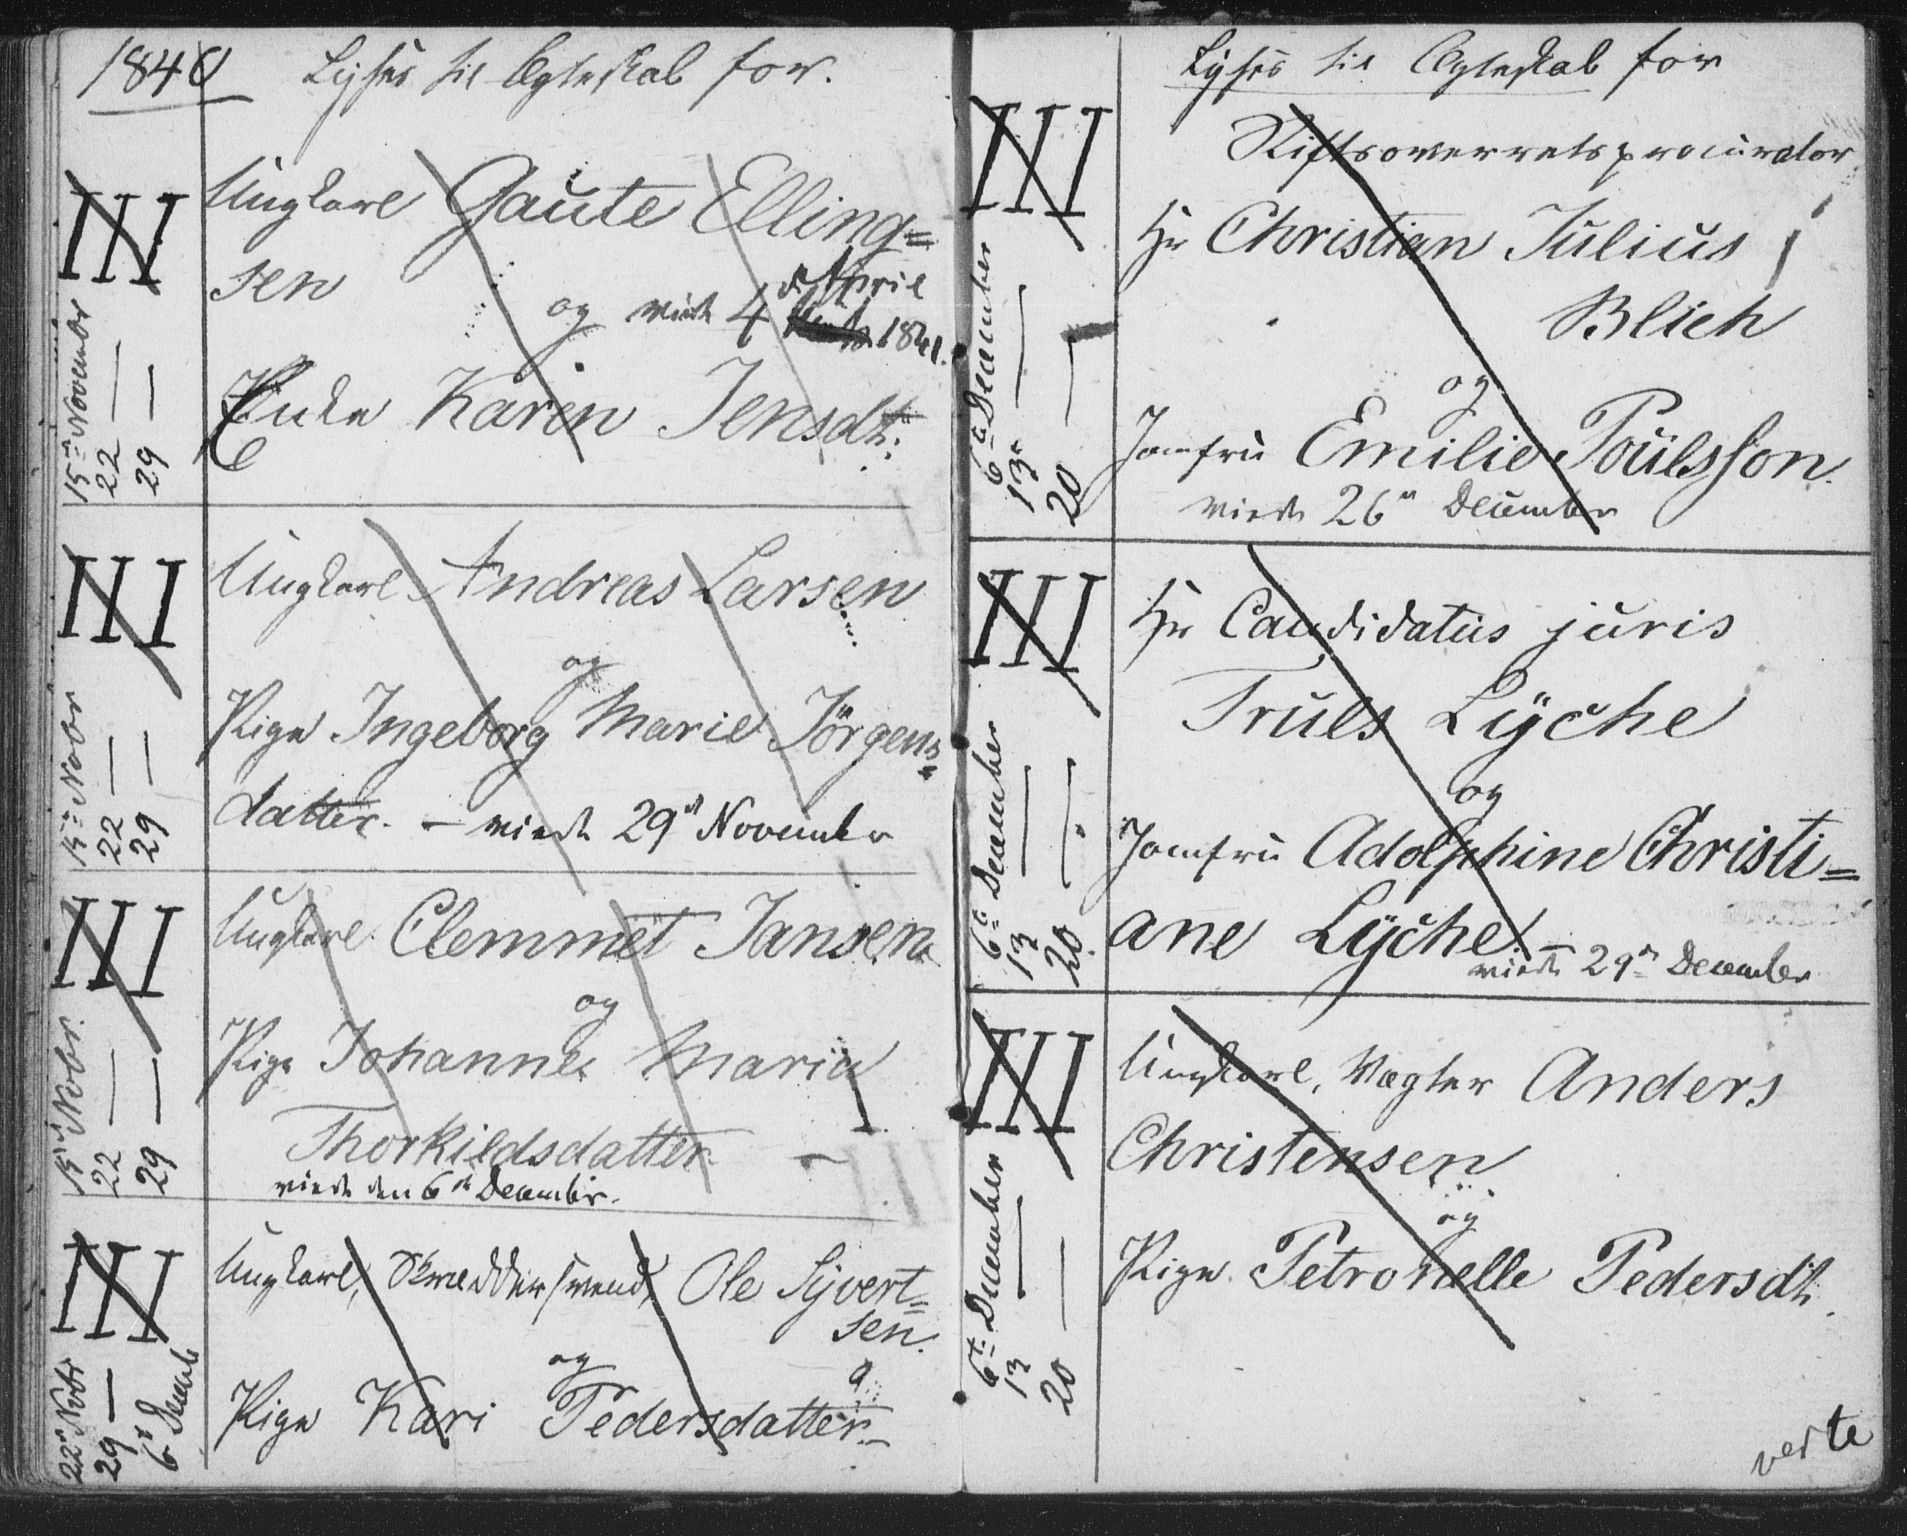 1840 Lyses til Ægteskab for.
III
15de November
22 —
29 —
Ungkarl Gaute Elling=
sen
og viede 4 de April
1841.
Enke Karen Jensdt:
III
15de Novbr
22 —
29 —
Ungkarl Andreas Larsen
og
Pige Ingeborg Marie Jörgens=
datter. — viede 29de November
III
15de Novbr.
22 —
29 —
Ungkarl Clemmet Jansen
og
Pige Johanne Maria
Thorkildsdatter —
viede den 6te December.
III
22de Novbr
29 —
6te Decemb
Ungkarl, Skræddersvend, Ole Syvert=
sen.
og
Pige Kari Pedersdatter
Lyses til Ægteskab for
III
6te December
13 —
20 —
Stiftsoverretsprocurator
Hr Christian Julius
Blich
og
Jomfru Emilie Poulsson.
viede 26de December
III
6te December
13 —
20 —
Hr Candidatus juris
Truls Lyche
og
Jomfru Adolphine Christi=
ane Lyche.
viede 29de December
III
6te December
13 —
20 —
Ungkarl, Vægter Anders
Christensen
og
Pige Petronelle Pedersdt.
verte